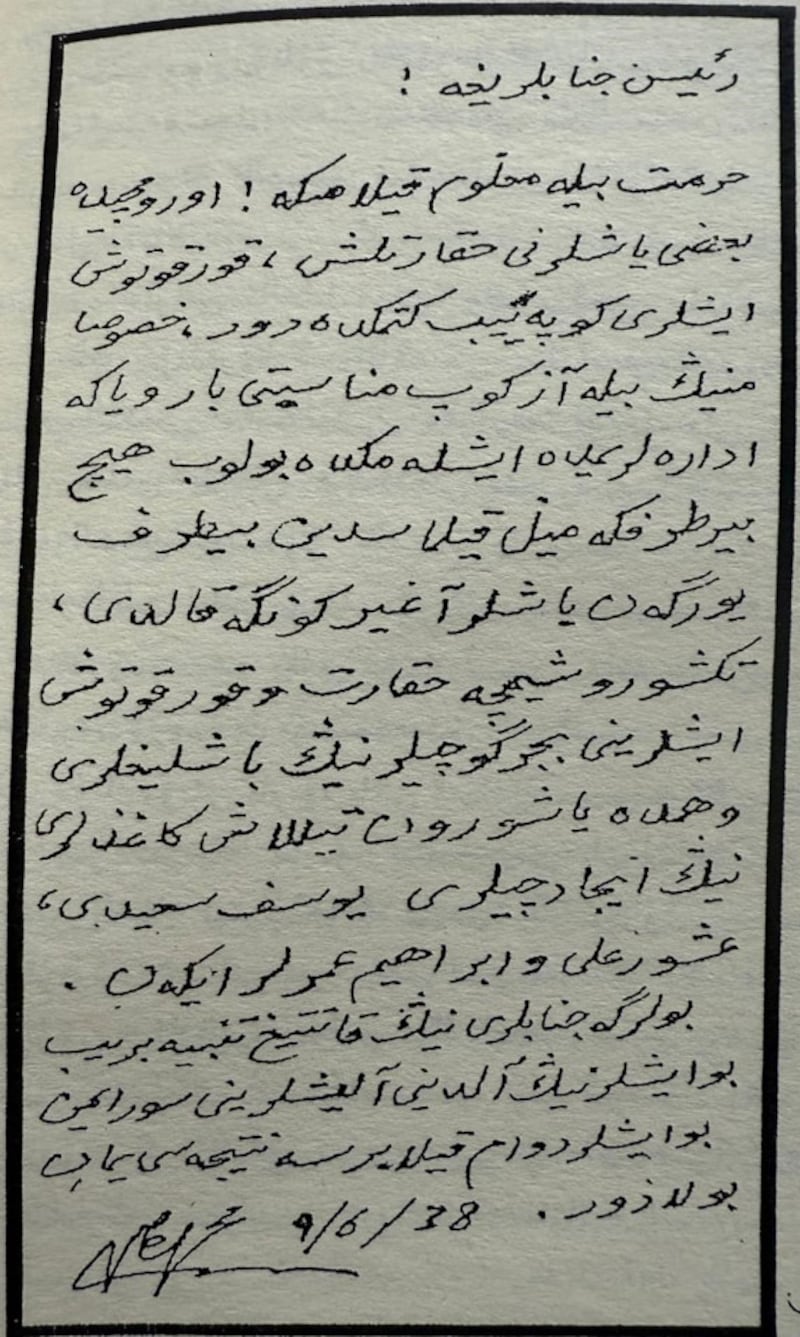 رئیس جنابلریغه !
حرمت بیله معلوم قیلامنکه ! اورومچیده
بعضی یاشلرنی حقارتلش ، قورقوتوش
ایشلری کوپه ییب کتمکده دور ، خصوصا
منینڭ بیله آز کوپ مناسبتی بار ویاکه
اداره لریمده ایشله مکده بولوب هیچ
بیرطرفکه میل قیلماسدین بیطرف
یورگه ن یاشلر آغیر کونگه قالدی ،
تکشوروشیمچه حقارت و قورقوتوش
ایشلرینی بجرگوچیلرنینڭ باشلیغلری
وهمده یاشورون تیللاش کاغذلری
نینڭ ایجادچیلری یوسف سعیدی ،
عشورعلی و ابراهیم عمرلر ایکه ن .
بولرگه جنابلری نینڭ قاتتیغ تنبیه بریب
بوایشلرنینڭ آلدینی آلیشلرینی سورایمن
بوایشلر دوام قیلایرسه نتیجه سی یمان
بولادور . 9/6/38